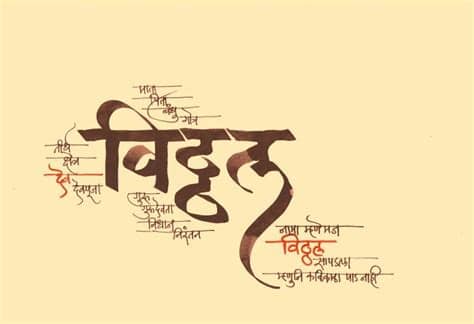 माता
पिता
बंधु
गोत्र
तीर्थ
क्षेत्र
देव
देवपूजा
विठ्ठल
गुरू
गुरुदेवता
निधान
नामा म्हणे मज
विठ्ठल
सापडला
म्हणुनि कळिकाळा पाड नाही